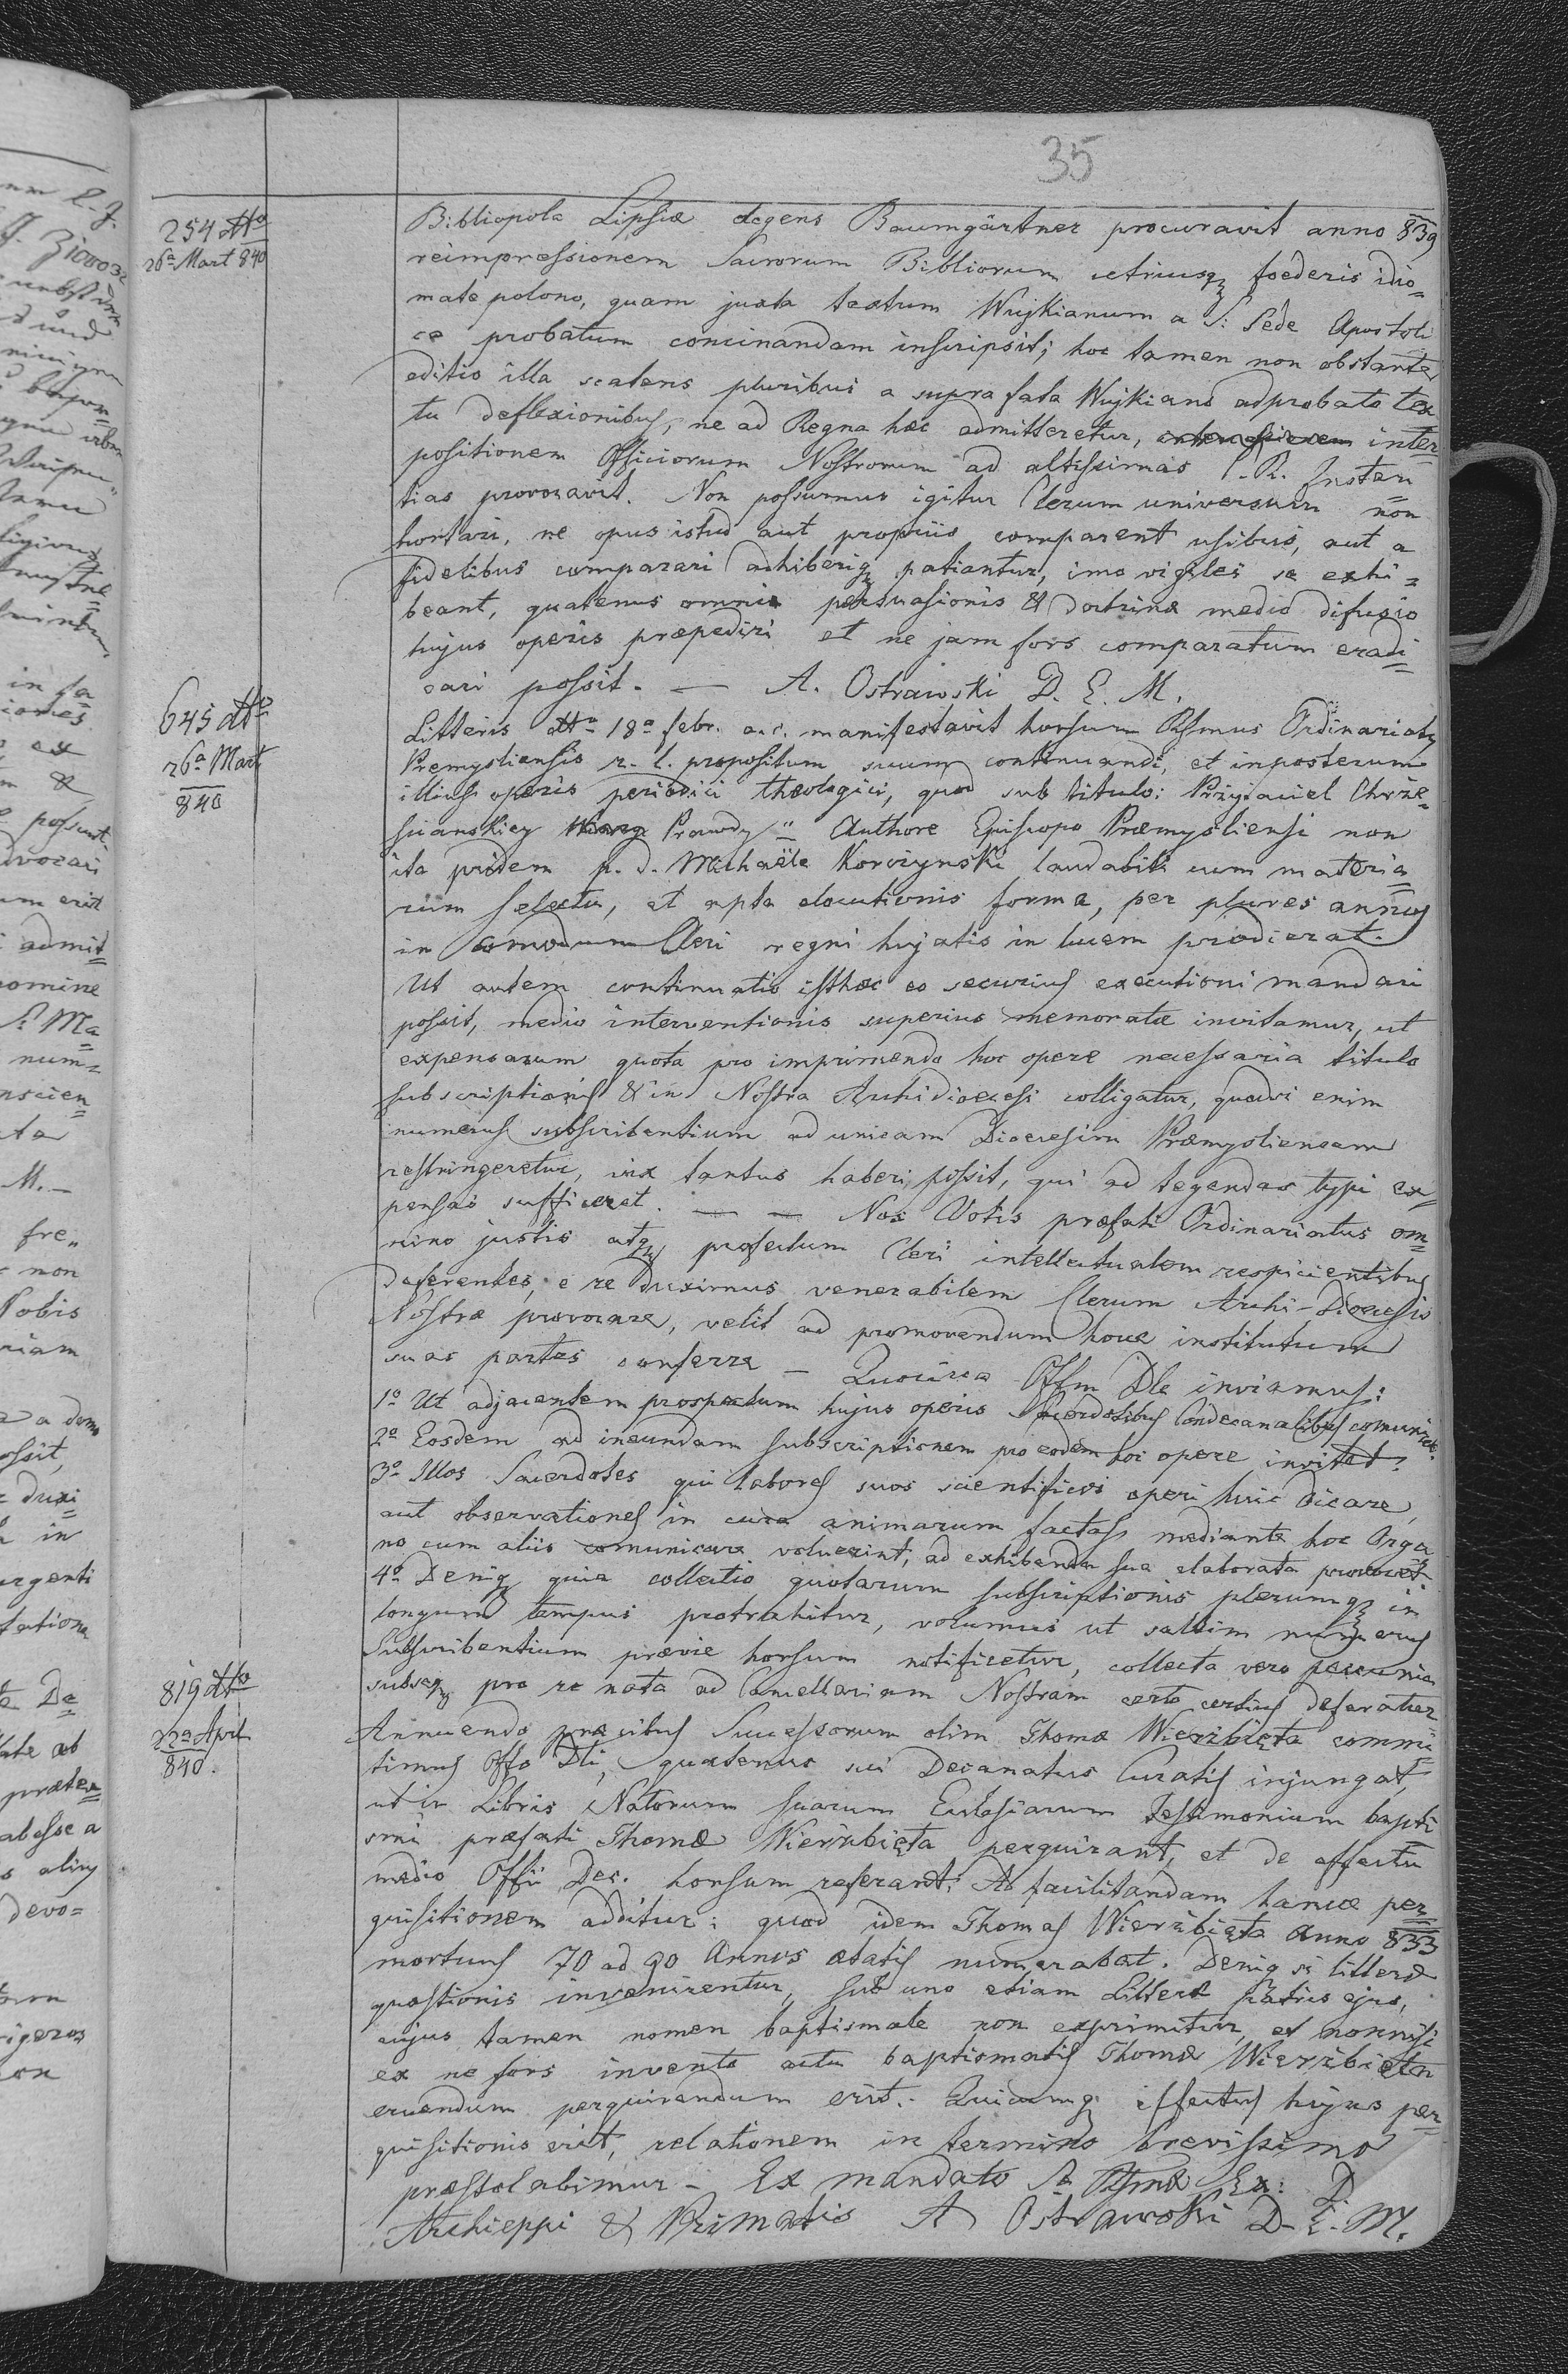 35
254 dtto
26a Mart 840
Bibliopola Lipsiæ degens Baumgärtner procuravit anno 839
reimpressionem Sacrorum Bibliorum utriusqz foederis idio=
mate polono, quam juxta textum Wujkianum a S: Sede Apostoli
ca probatum concinandam inscripsit; hoc tamen non obstante
editio illa scatens pluribus a supra fata Wujkiano adprobato tex
tu deflexionibus, ne ad Regna hæc admitteretur, inter=
positionem Officiorum Nostrorum ad altissimas C. R. Instan=
tias provocavit. Non possumus igitur Clerum universum non
hortari, ne opus istud aut propriis comparent usibus, aut a
fidelibus comparari adhiberiqz patiantur, imo vigiles se exhi=
beant, quatenus omnis persuasionis & doctrinæ medio difusio
hujus operis præpediri et ne jam fors comparatum eradi=
cari possit. — A. Ostrawski D. E. M.
645 dtto
26a Mart
840
Litteris dtto 18a febr. a. c. manifestavit horsum Rssmus Ordinariatus
Premysliensis r. l. propositum suum continuandi, et inposterum
illius operis periodici theologici, quod sub titulo: Przyjaciel Chrze=
scianskiey Prawdy" Authore Episcopo Præmysliensi non
ita pridem p. d. Michaële Korczynski laudabili cum materia=
rum selectu, et apta elocutionis forma, per plures annos
in comodum Cleri regni hujatis in lucem prodierat.
Ut autem continuatio isthæc eo securius executioni mandari
possit, medio interventionis superius memoratæ invitamur, ut
expensarum quota pro imprimendo hoc opere necessaria titulo
subscriptionis & in Nostra Archidioecesi colligatur, quodsi enim
numerus subscribentium ad unicam Dioecesim Præmysliensem
restringeretur, vix tantus haberi possit, qui ad tegendas typi ex=
pensas sufficeret. — — Nos Votis præfati Ordinariatus om=
nino justis atqz profectum Cleri intellectualem respicientibus
deferentes, e re duximus venerabilem Clerum Archi-Dioecesis
Nostræ provocare, velit ad promovendum hocce institutum
suas partes conferre — Quocirca Offm Dle inviamus:
1o Ut adjacentem prospectum hujus operis Sacerdotibus Condecanalibus comunicet.
2o Eosdem ad ineundam subscriptionem pro eodem hoc opere invitet.
3o Illos Sacerdotes qui labores suos scientificos operi huic dicare,
aut observationes in cura animarum factas mediante hoc Orga=
no cum aliis comunicare voluerint, ad exhibenda sua elaborata provocet.
4o Deniqz quia collectio quotarum subscriptionis plerumqz in
longum tempus protrahitur, volumus ut saltim numerus
Subscribentium prævie horsum notificetur, collecta vero pecunia
subseqz pro re nata ad Cancellariam Nostram certo certius deferatur
819 dtto
22a April
840.
Annuendo precibus Successorum olim Thomæ Wierzbięta commi=
timus Offo Dli, quatenus sui Decanatus Curatis injungat,
ut in Libris Natorum suarum Ecclesiarum Testimonium bapti
smi præfati Thomæ Wierzbięta perquirant, et de effectu
medio Offii Dec. horsum referant. Ad facilitandam hancce per=
quisitionem additur: quod idem Thomas Wierzbięta Anno 833
mortuus 70 ad 90 Annos ætatis numerabat. Deniqz si litteræ
quæstionis invenirentur, sub uno etiam Litteræ patris ejus,
cujus tamen nomen baptismale non exprimitur et nonnisi
ex ne fors invento actu baptismatis Thomæ Wierzbięta
eruendum perquirendum erit. Quicumqz effectus hujus per=
quisitionis erit, relationem in termino brevissimo
præstolabimur — Ex mandato Rssmæ Ex: D
Archieppi & Primatis A Ostrawski D. E. M.